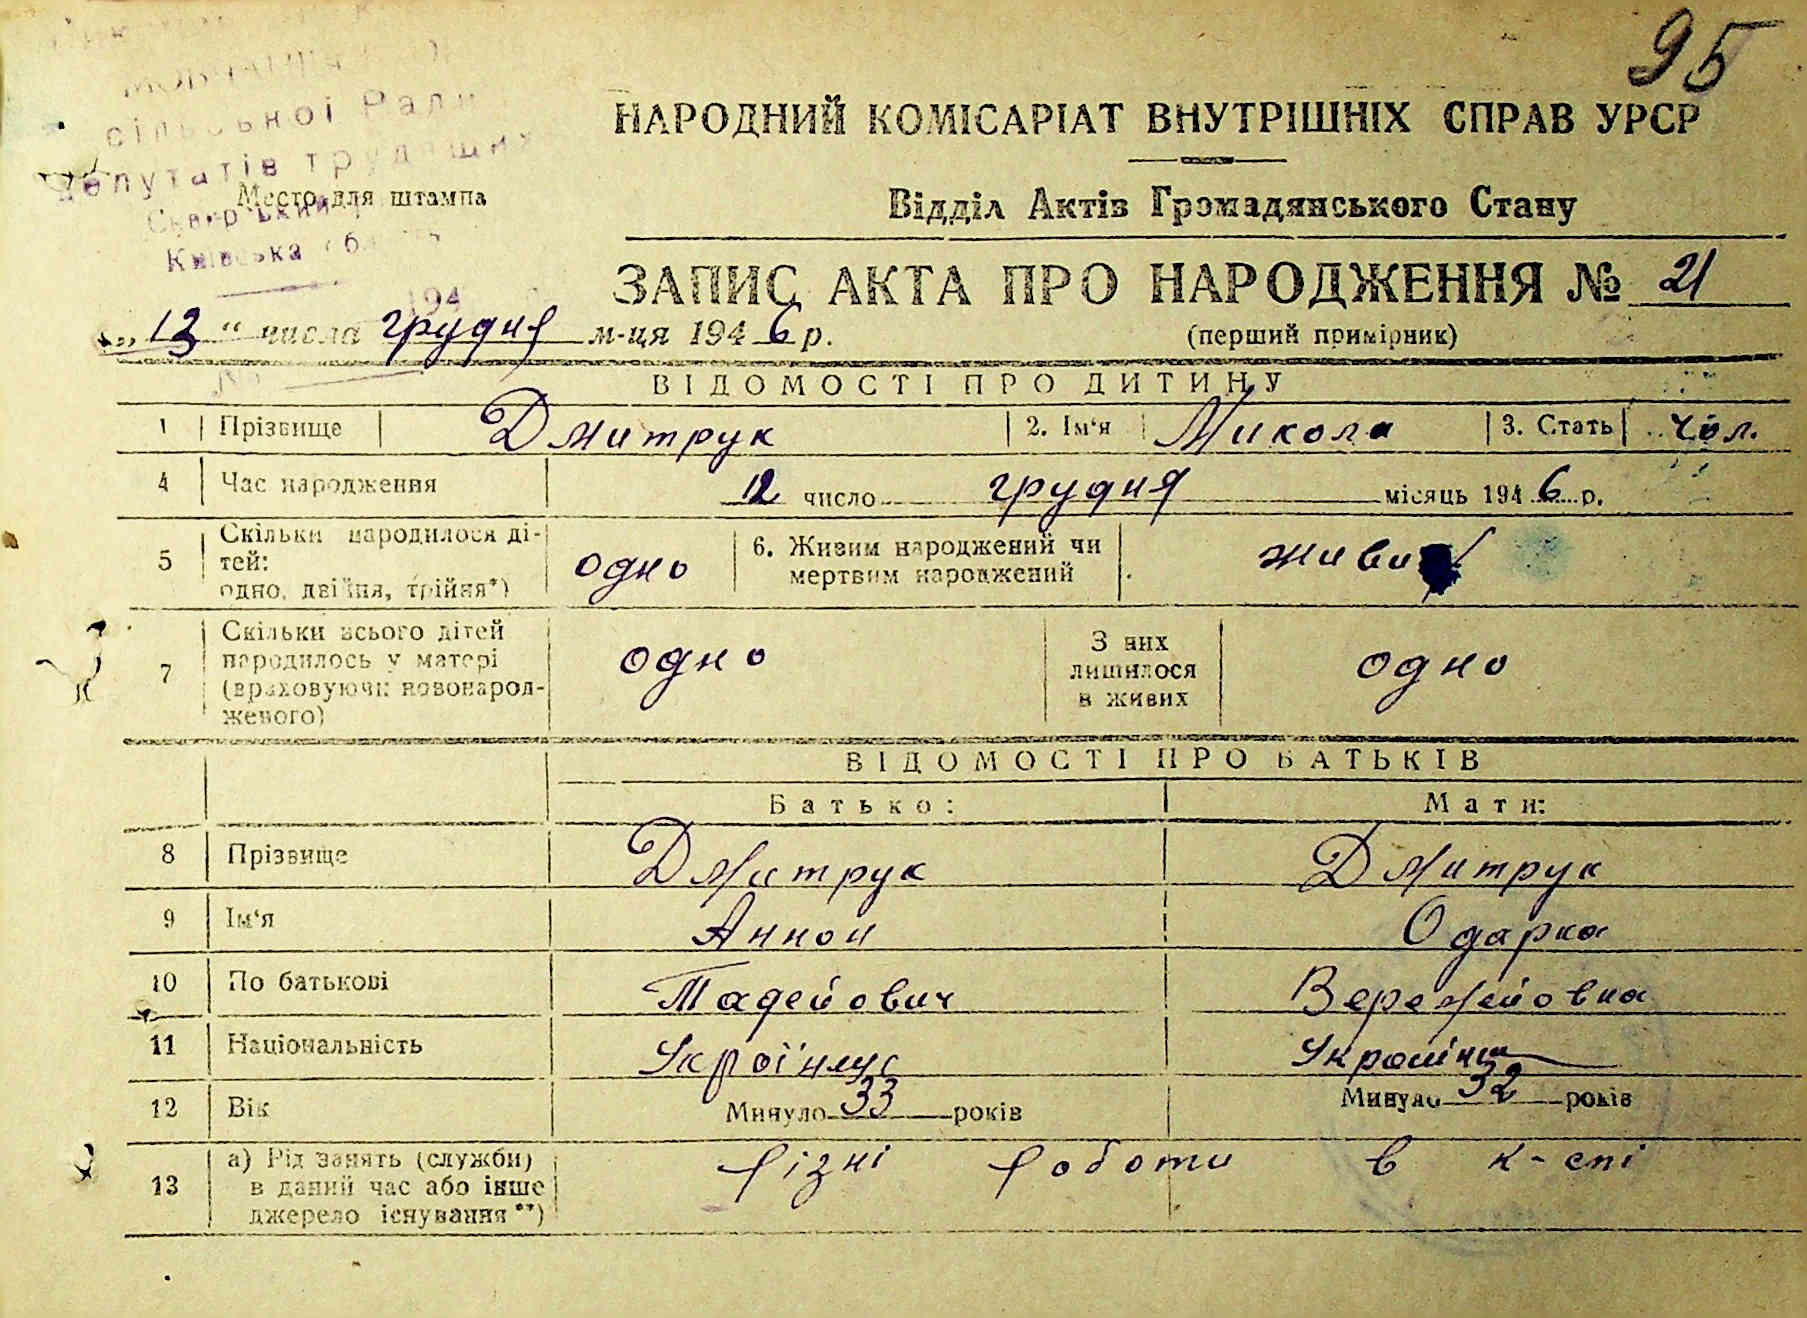 95
сільської Ради
депутатів трудящих
Место для штампа
Київська
194
НАРОДНИЙ КОМІСАРІАТ ВНУТРІШНІХ СПРАВ УРСР
Відділ Актів Громадянського Стану
ЗАПИС АКТА ПРО НАРОДЖЕННЯ № 21
„ 13 “ числа грудня м-ця 1946 р.
(перший примірник)
ВІДОМОСТІ ПРО ДИТИНУ
1 Прізвище Дмитрук 2. Ім‘я Микола 3. Стать чол.
4 Час народження 12 число грудня місяць 1946 р.
5 Скільки народилося ді-
тей:
одно, двійня, трійня*) одно 6. Живим народжений чи
мертвим народжений
7 Скільки всього дітей
народилось у матері
(враховуючи новонарод-
женого) одно З них
лишилося
в живих одно
ВІДОМОСТІ ПРО БАТЬКІВ
Батько: Мати:
8 Прізвище Дмитрук Дмитрук
9 Ім‘я Антон Одарка
10 По батькові Тадейович
11 Національність Українец Українка
12 Вік Минуло 33 років Минуло 32 років
13 а) Рід занять (служби)
в даний час або інше
джерело існування**) різні роботи в к-спі